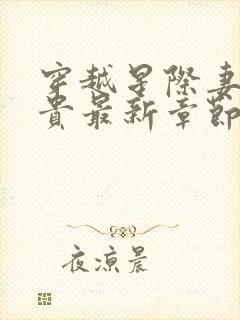 穿越星際妻
貴最新章節
夜涼晨